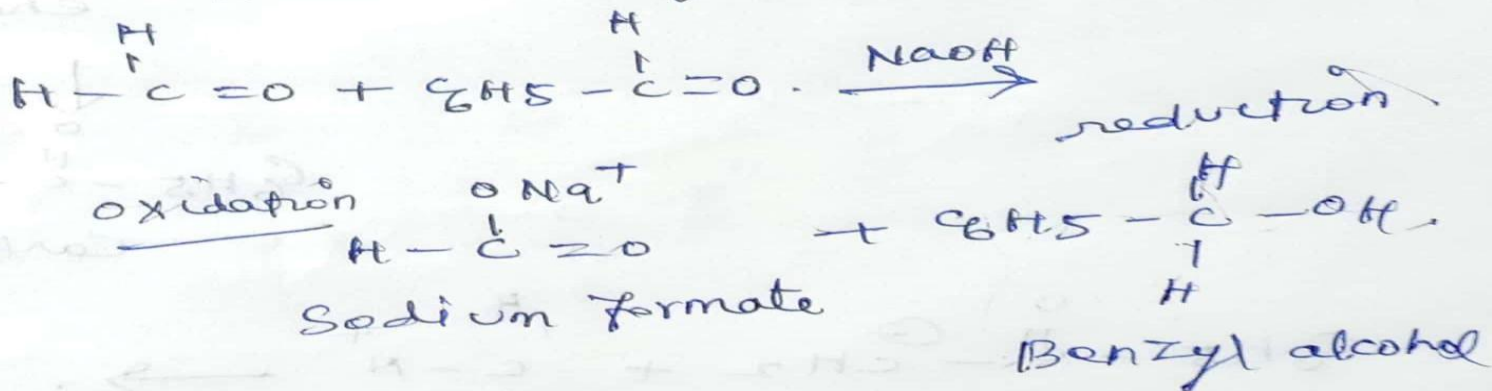 H H
H - C = O + C6H5 - C = O . NaOH
reduction
oxidation O Na+ H
H - C = O + C6H5 - C - OH.
H
Sodium formate
Benzyl alcohol